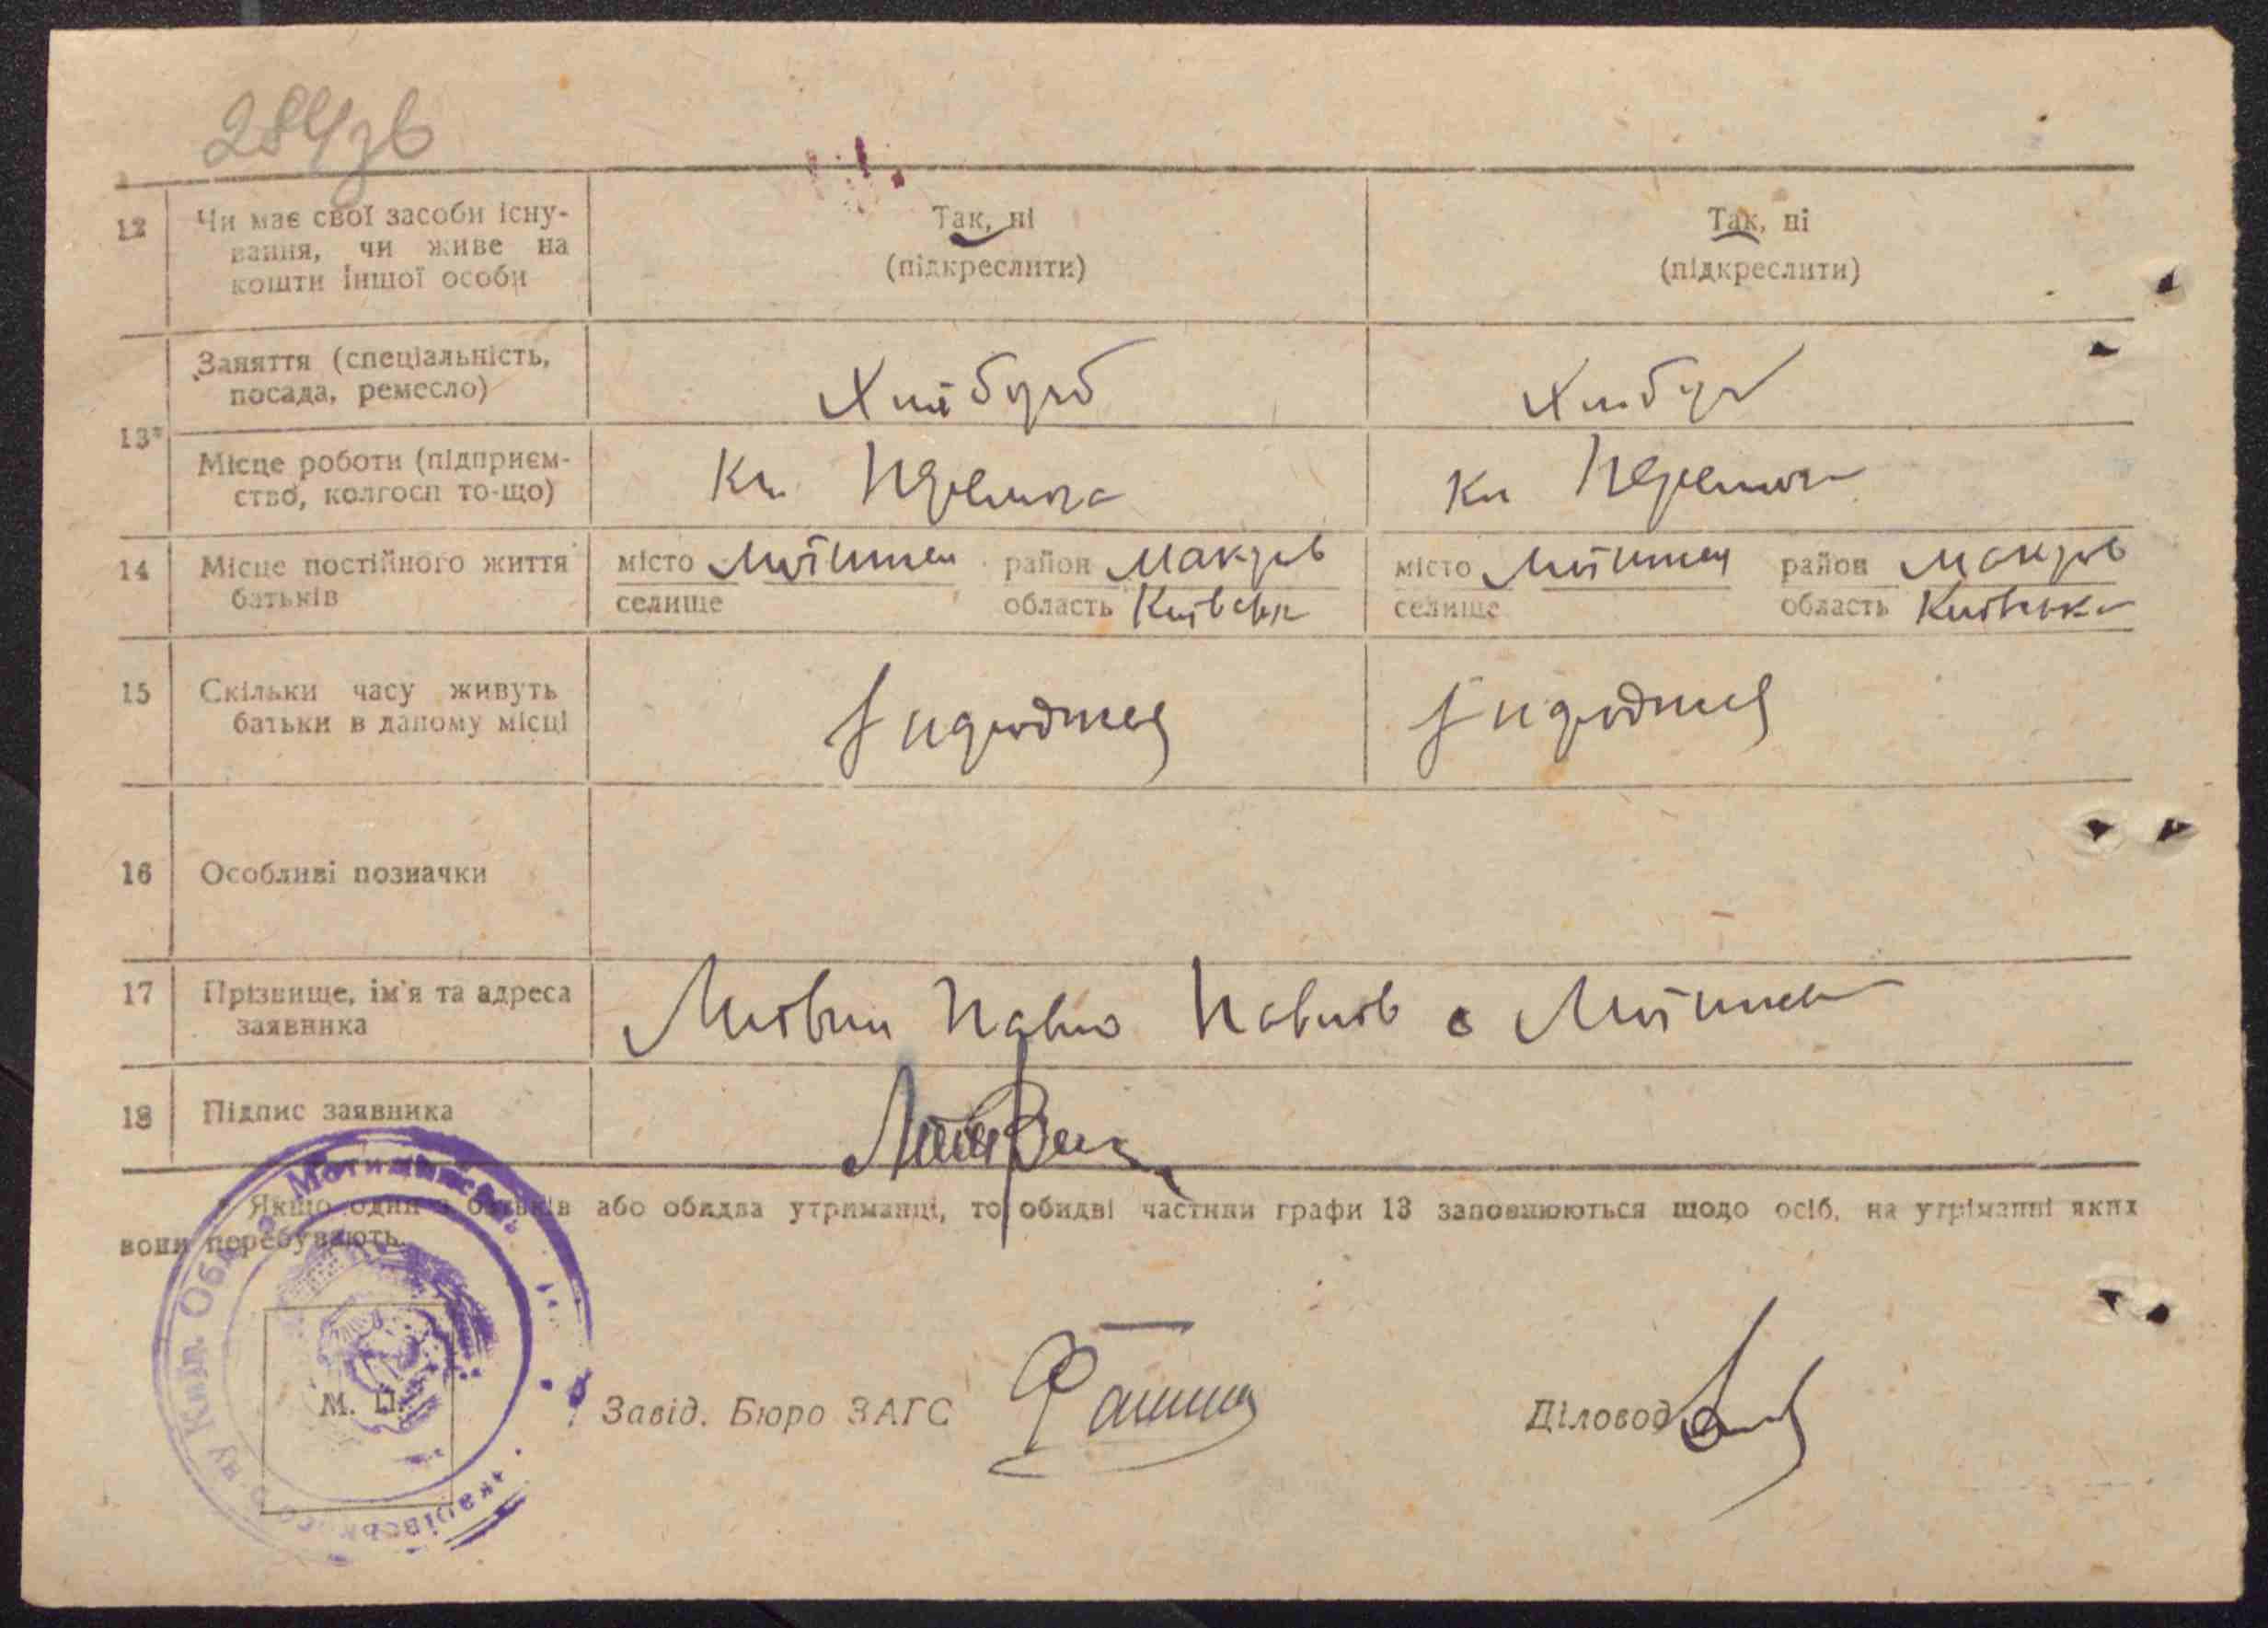 284зв
12 Чи має свої засоби існу-
вання, чи живе на
кошти іншої особи
Так, ні
(підкреслити)
Так, ні
(підкреслити)
13*
Заняття (спеціальність,
посада, ремесло)
Хлібороб
Хлібороб
Місце роботи (підприєм-
ство, колгосп то-що)
Кп Перемога
Кп Перемога
14 Місце постійного життя
батьків
місто
селище
район Макарів
область Київська
місто
селище
район Макарів
область Київська
15 Скільки часу живуть
батьки в даному місці
З народження
З народження
16 Особливі позначки
17 Прізвище, ім'я та адреса
заявника
Литвин Павло Павлов с
18 Підпис заявника
Литвин
* Якщо один з батьків або обидва утриманці, то обидві частини графи 13 заповнюються щодо осіб, на утріманні яких
вони перебувають.
М. П.
Завід. Бюро ЗАГС
Діловод